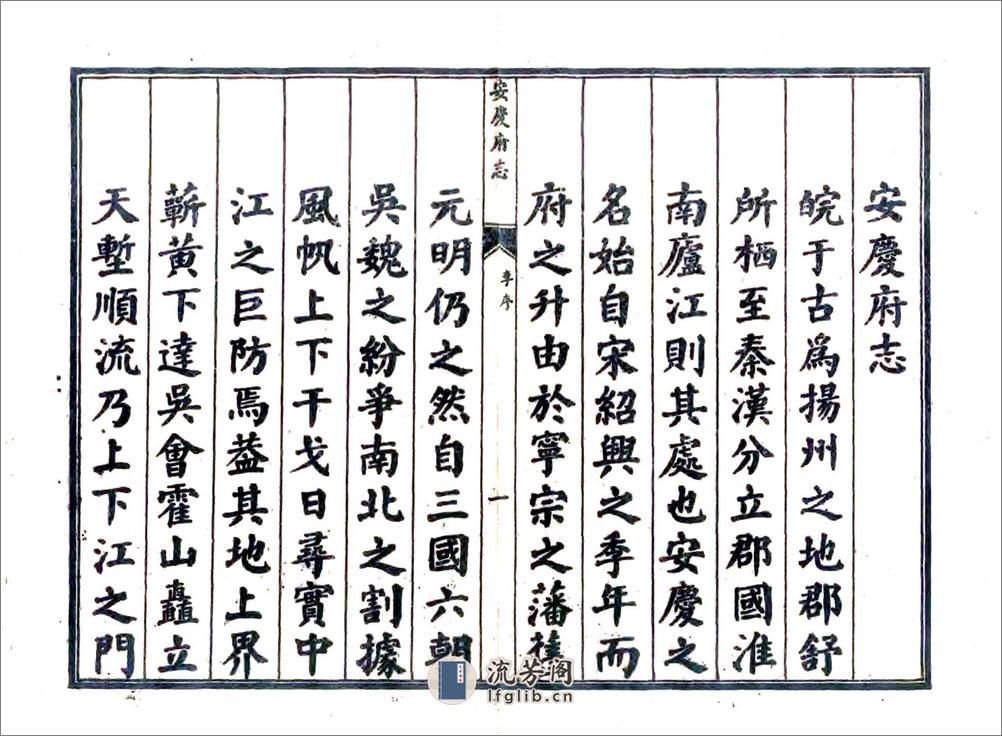 安慶府志
皖于古爲揚州之地郡舒
所栖至秦漢分立郡國淮
南廬江則其處也安慶之
名始自宋紹興之季年而
府之升由於寧宗之藩
安慶府志
李序
一
元明仍之然自三國六朝
吳魏之紛爭南北之割據
風帆上下干戈日尋實中
江之巨防焉葢其地上界
蘄黃下達吳會霍山矗立
天塹順流乃上下江之門
流芳阁
lfglib.cn